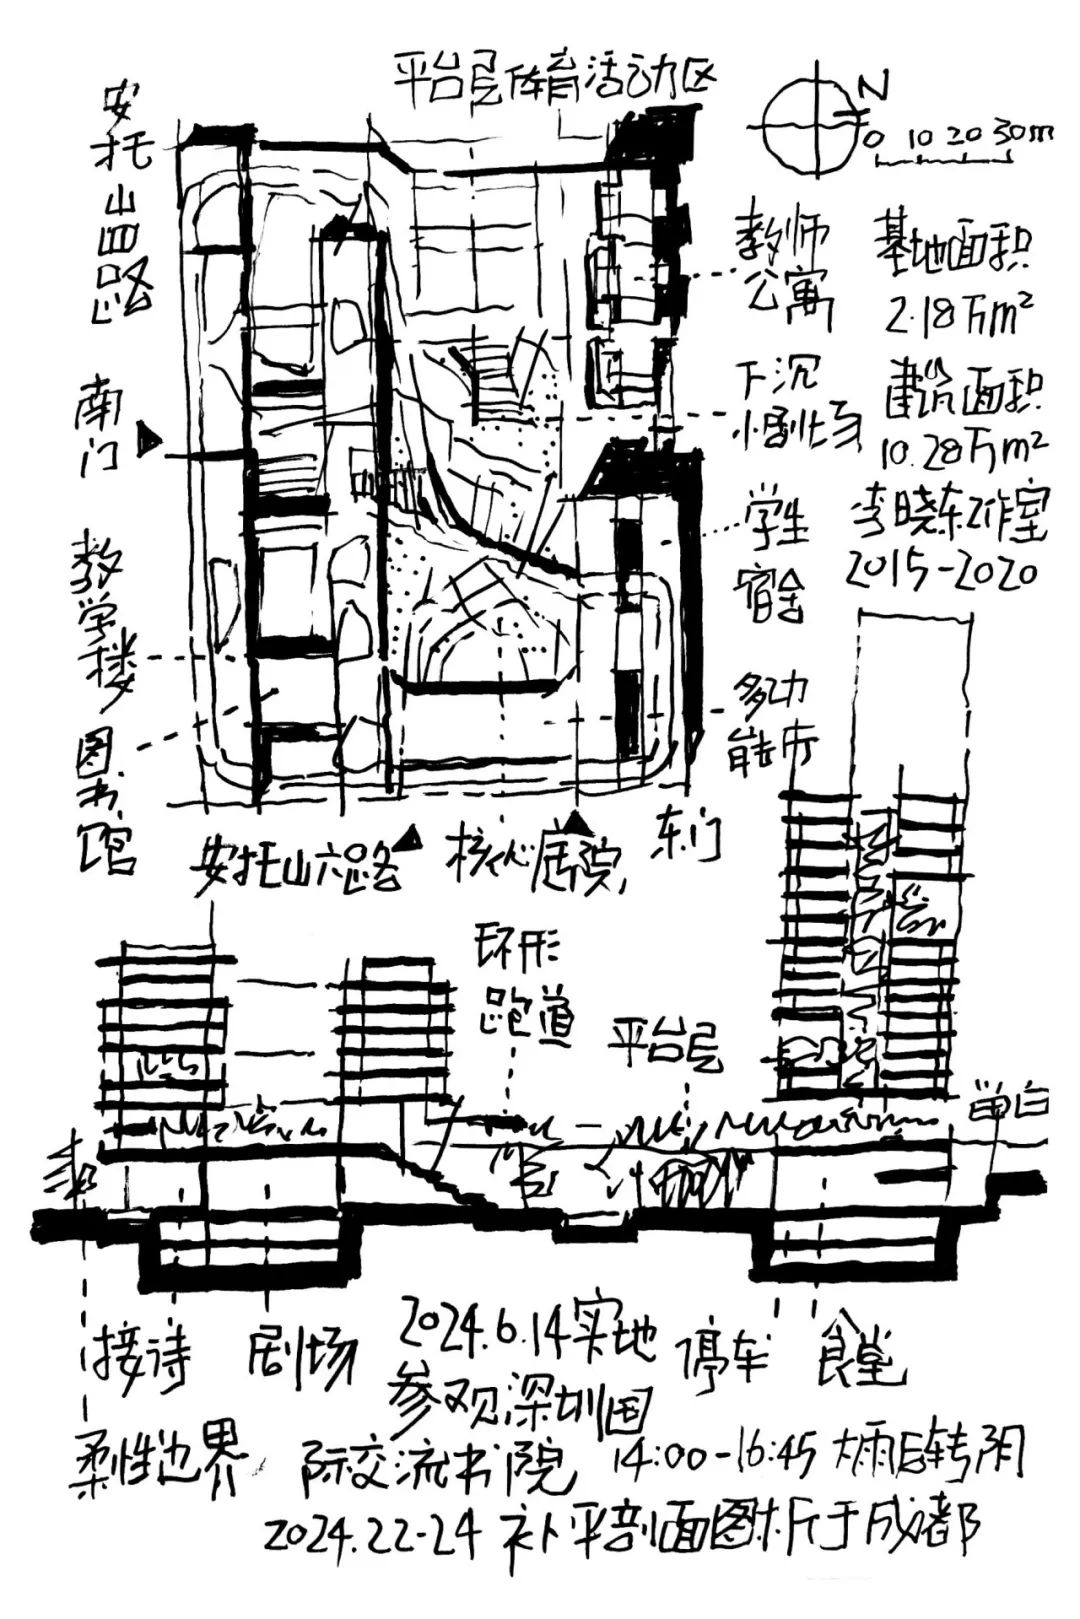 平台层体育活动区
N
0 10 20 30m
安托山四路
南门
教学楼
图书馆
教师
公寓
下沉
小剧场
学生
宿舍
多功
能厅
基地面积
2.18万m²
建筑面积
10.28万m²
李晓东工作室
2015-2020
安托山六路
核心庭院
东门
环形
跑道
平台层
留白
接待
剧场
停车
食堂
柔性边界
2024.6.14实地
参观深圳国
际交流书院
14:00-16:45 大雨后转阴
2024.22-24 补平剖面图析于成都